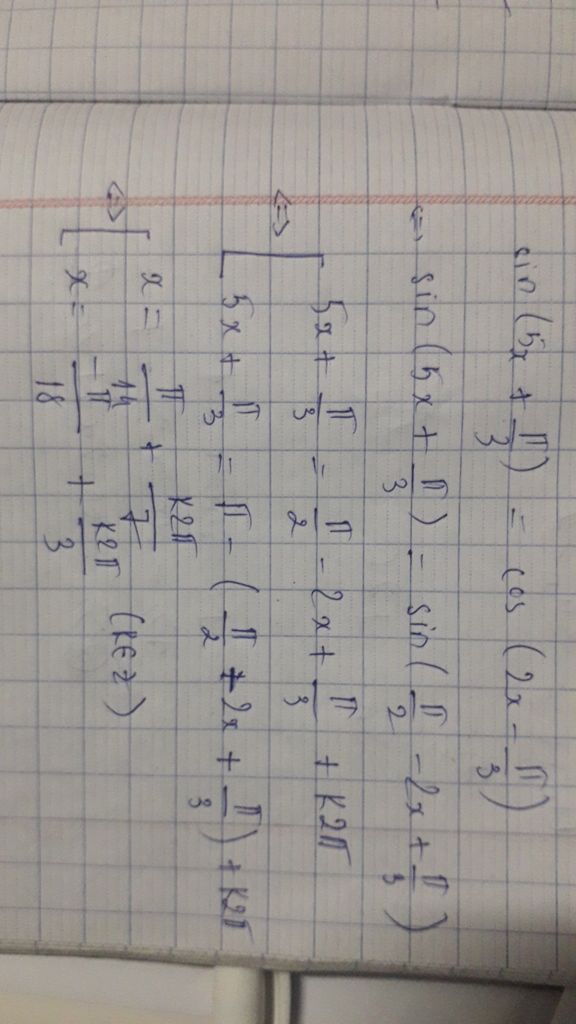 sin (5x + π/3) = cos (2x - π/3)
⇔ sin (5x + π/3) = sin (π/2 - 2x + π/3)
⇔ [ 5x + π/3 = π/2 - 2x + π/3 + k2π
[ 5x + π/3 = π - (π/2 - 2x + π/3) + k2π
⇔ [ x = π/14 + k2π/7
[ x = -π/18 + k2π/3 (k∈Z)